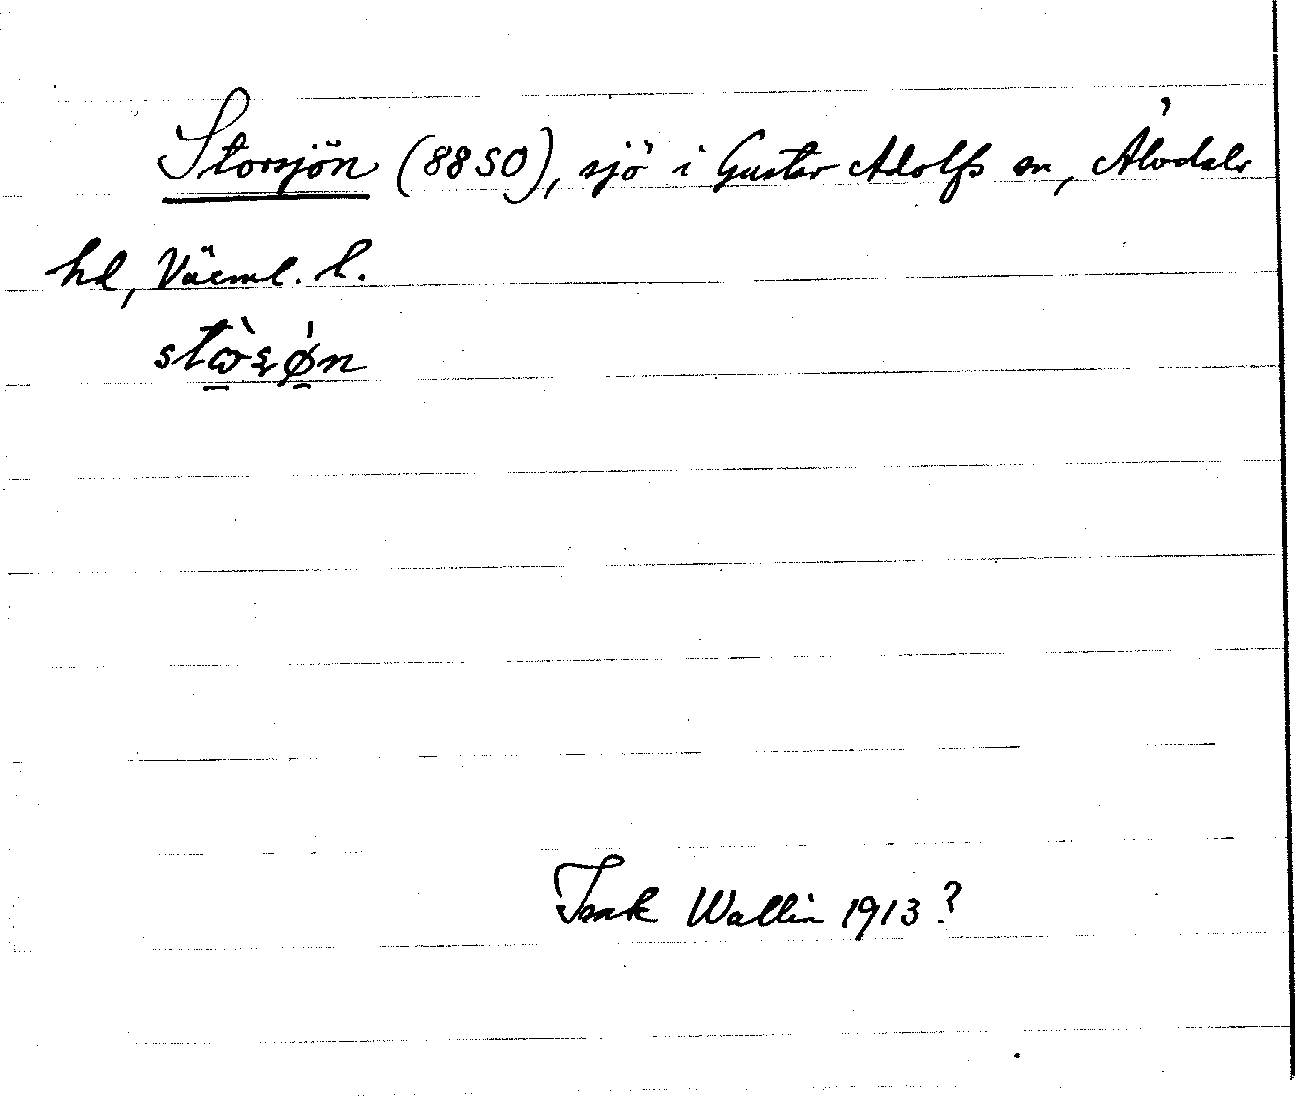 Storsjön (8850), sjö i Gustav Adolfs sn, Älvdals
hd, Värml. l.
Isak Wallin 1913?